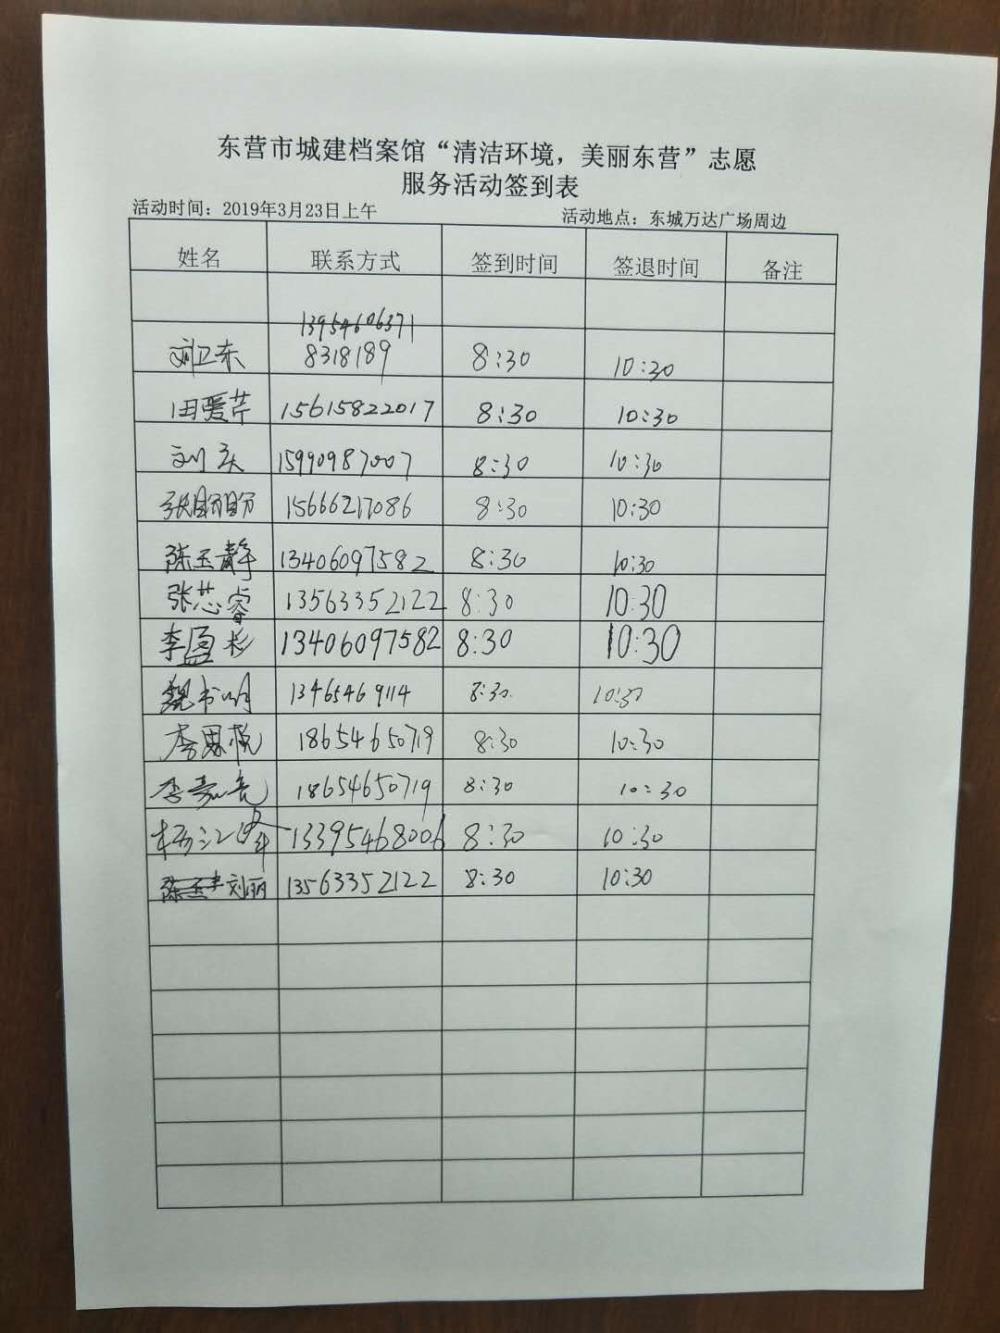 东营市城建档案馆“清洁环境，美丽东营”志愿
服务活动签到表
活动时间：2019年3月23日上午 活动地点：东城万达广场周边
姓名 联系方式 签到时间 签退时间 备注
13954606371
刘卫东 8318189 8:30 10:30
田爱芹 15615822017 8:30 10:30
刘庆 15990987007 8:30 10:30
张盼盼 15666217086 8:30 10:30
陈玉静 13406097582 8:30 10:30
张芯睿 13563352122 8:30 10:30
李盈杉 13406097582 8:30 10:30
魏书明 13465469114 8:30 10:30
李思悦 18654650719 8:30 10:30
李嘉亮 18654650719 8:30 10:30
杨江峰 13395468006 8:30 10:30
刘丽 13563352122 8:30 10:30